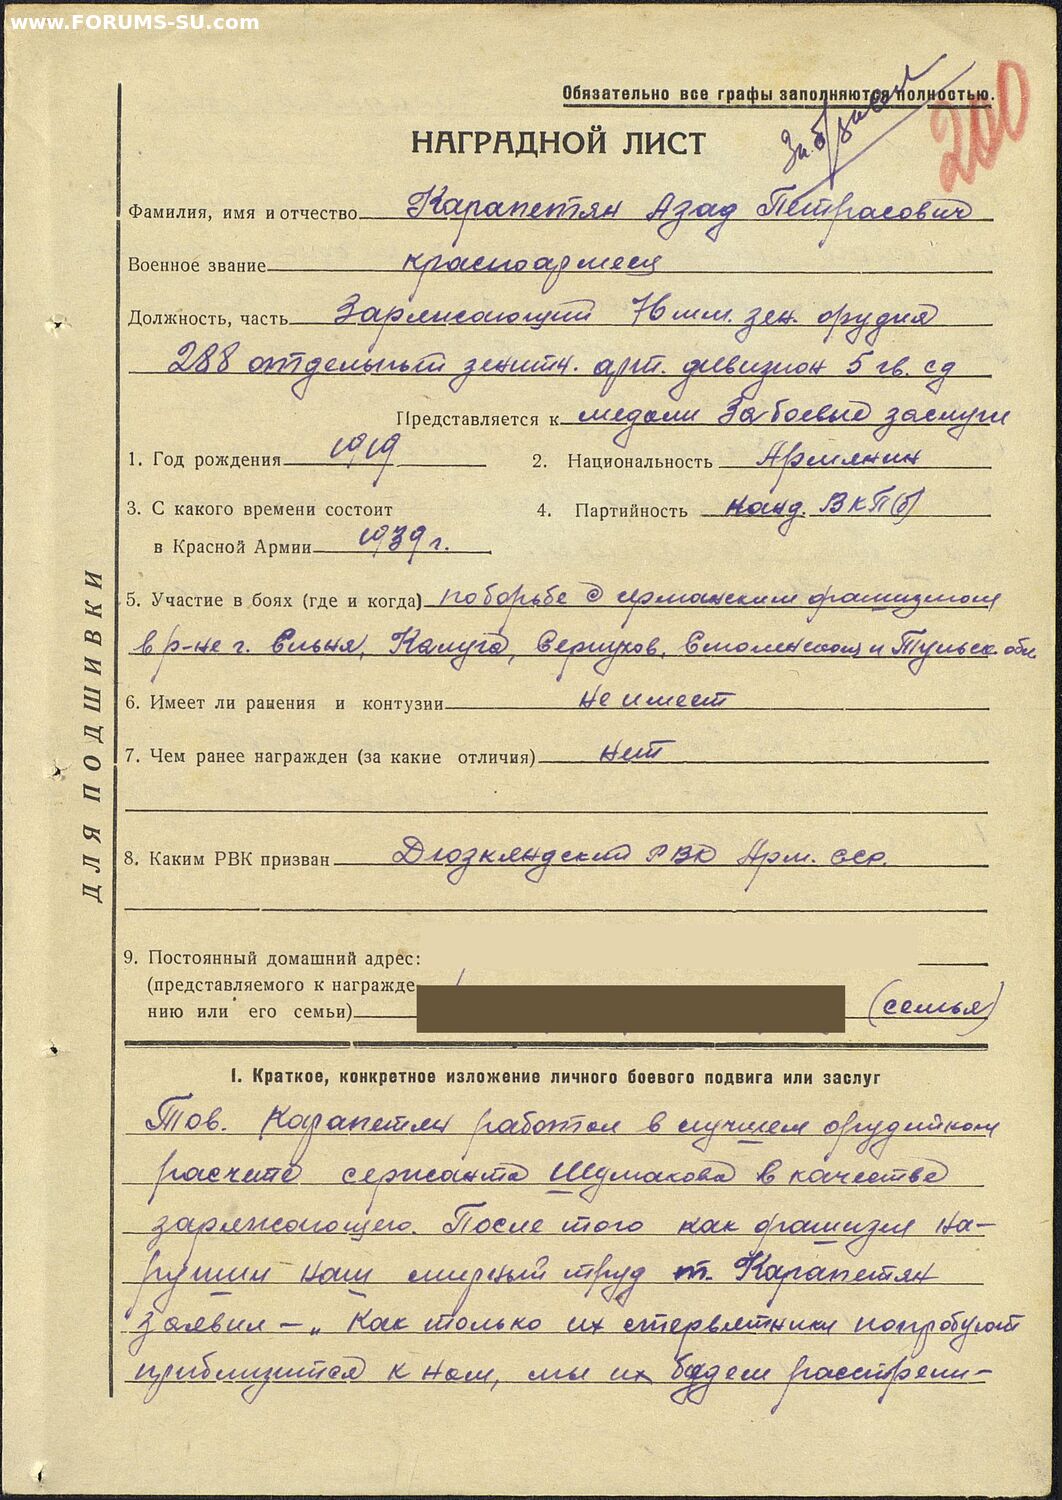 www.FORUMS-SU.com
Обязательно все графы заполняются полностью.
За б/заслуги
200
НАГРАДНОЙ ЛИСТ
Фамилия, имя и отчество Карапетян Азад Петрасович
Военное звание красноармеец
Должность, часть Заряжающий 76 мм. зен. орудия
288 отдельный зенитн. арт. дивизион 5 гв. сд
Представляется к медали За боевые заслуги
1. Год рождения 1919 2. Национальность Армянин
3. С какого времени состоит 4. Партийность канд. ВКП(б)
в Красной Армии 1939 г.
5. Участие в боях (где и когда) по борьбе с германским фашизмом
в р-не г. Ельня, Калуга, Серпухов, Смоленской и Тульск. обл
6. Имеет ли ранения и контузии не имеет
7. Чем ранее награжден (за какие отличия) нет
8. Каким РВК призван РВК Арм. ССР.
9. Постоянный домашний адрес:
(представляемого к награжде
нию или его семьи) (семья)
I. Краткое, конкретное изложение личного боевого подвига или заслуг
Тов. Карапетян работал в лучшем орудийном
расчете сержанта Шумакова в качестве
заряжающего. После того как фашизм на-
рушил наш мирный труд т. Карапетян
заявил – „Как только их стервятники попробуют
приблизится к нам, мы их будем расстрели-
ДЛЯ ПОДШИВКИ